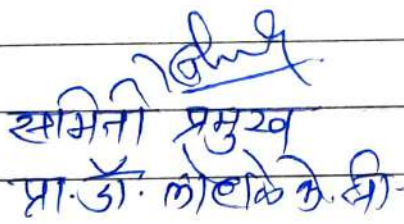 समिती प्रमुख
प्रा. डॉ. लोहाळे के. सी.